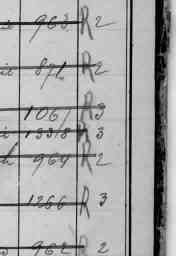 963 R 2
871 R 2
1061 R 3
1338 R 3
964 R 2
1266 R 3
962 R 2